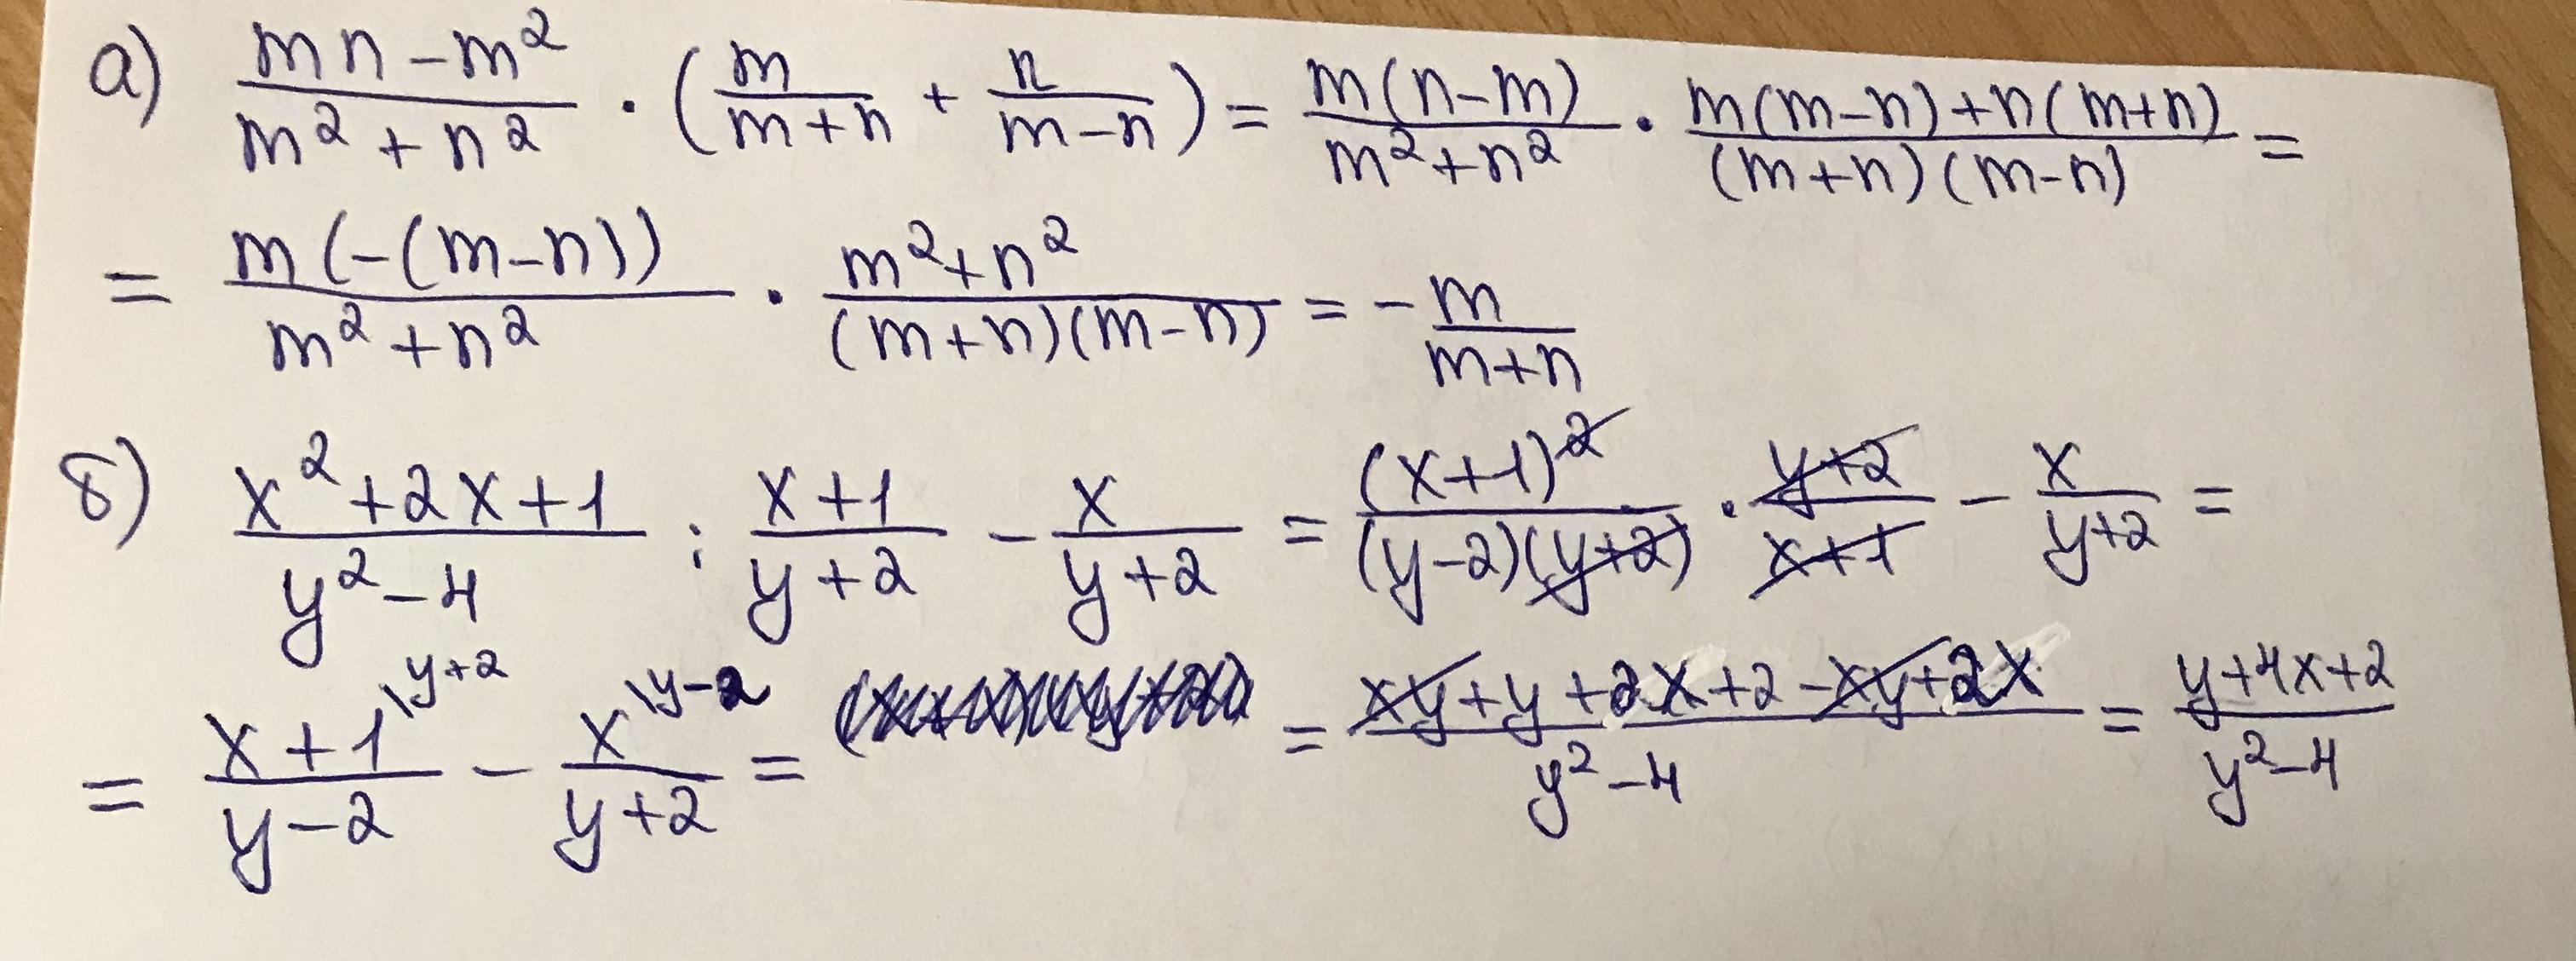 а) (mn-m²)/(m²+n²) · (m/(m+n) + n/(m-n)) = m(n-m)/(m²+n²) · (m(m-n)+n(m+n))/((m+n)(m-n)) =
= m(-(m-n))/(m²+n²) · (m²+n²)/((m+n)(m-n)) = - m/(m+n)
б) (x²+2x+1)/(y²-4) : (x+1)/(y+2) - x/(y+2) = (x+1)²/((y-2)(y+2)) · (y+2)/(x+1) - x/(y+2) =
= (x+1)/(y-2) \y+2 - x/(y+2) \y-2 = = (xy+y+2x+2-xy+2x)/(y²-4) = (y+4x+2)/(y²-4)